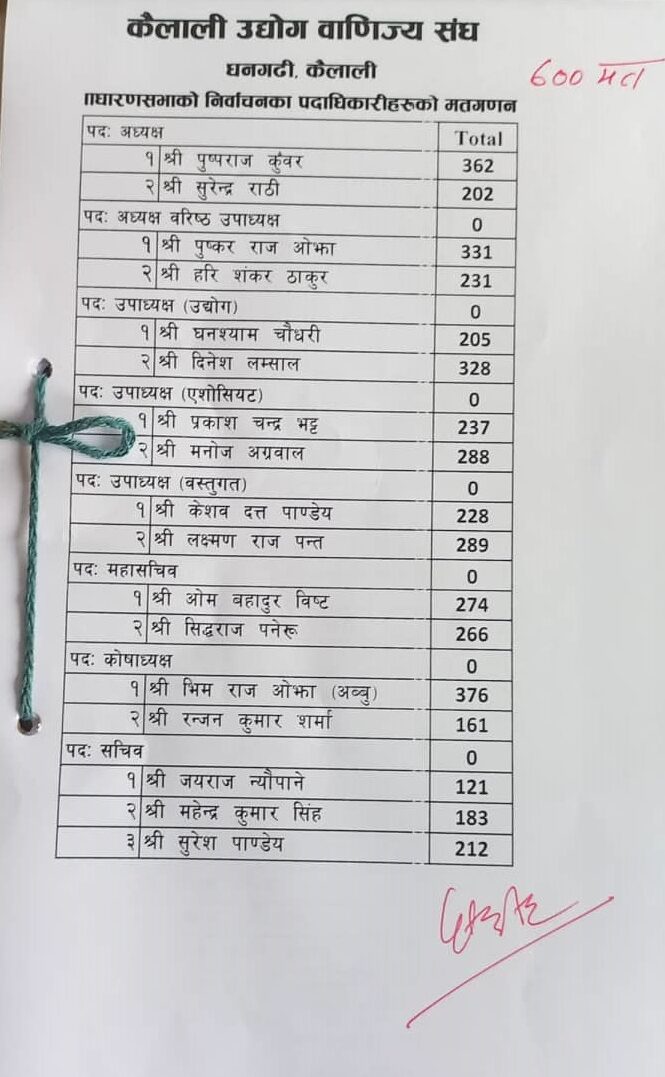 कैलाली उद्योग वाणिज्य संघ
धनगढी, कैलाली
600 मत
ाधारणसभाको निर्वाचनका पदाधिकारीहरुको मतगणन
पदः अध्यक्ष Total
१ श्री पुष्पराज कुंवर 362
२ श्री सुरेन्द्र राठी 202
पदः अध्यक्ष वरिष्ठ उपाध्यक्ष 0
१ श्री पुष्कर राज ओझा 331
२ श्री हरि शंकर ठाकुर 231
पदः उपाध्यक्ष (उद्योग) 0
१ श्री घनश्याम चौधरी 205
२ श्री दिनेश लम्साल 328
पदः उपाध्यक्ष (एशोसियट) 0
१ श्री प्रकाश चन्द्र भट्ट 237
२ श्री मनोज अग्रवाल 288
पदः उपाध्यक्ष (वस्तुगत) 0
१ श्री केशव दत्त पाण्डेय 228
२ श्री लक्ष्मण राज पन्त 289
पदः महासचिव 0
१ श्री ओम बहादुर विष्ट 274
२ श्री सिद्धराज पनेरू 266
पदः कोषाध्यक्ष 0
१ श्री भिम राज ओझा (अब्बु) 376
२ श्री रन्जन कुमार शर्मा 161
पदः सचिव 0
१ श्री जयराज न्यौपाने 121
२ श्री महेन्द्र कुमार सिंह 183
३ श्री सुरेश पाण्डेय 212